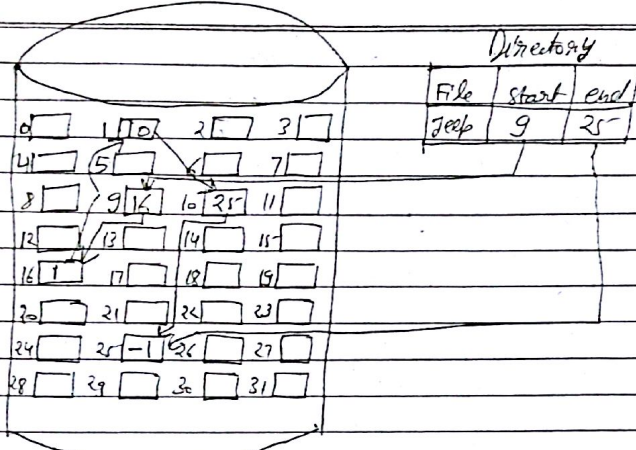 Directory
File start end
Jeep 9 25
0 1 10 2 3
4 5 6 7
8 9 16 10 25 11
12 13 14 15
16 1 17 18 19
20 21 22 23
24 25 -1 26 27
28 29 30 31